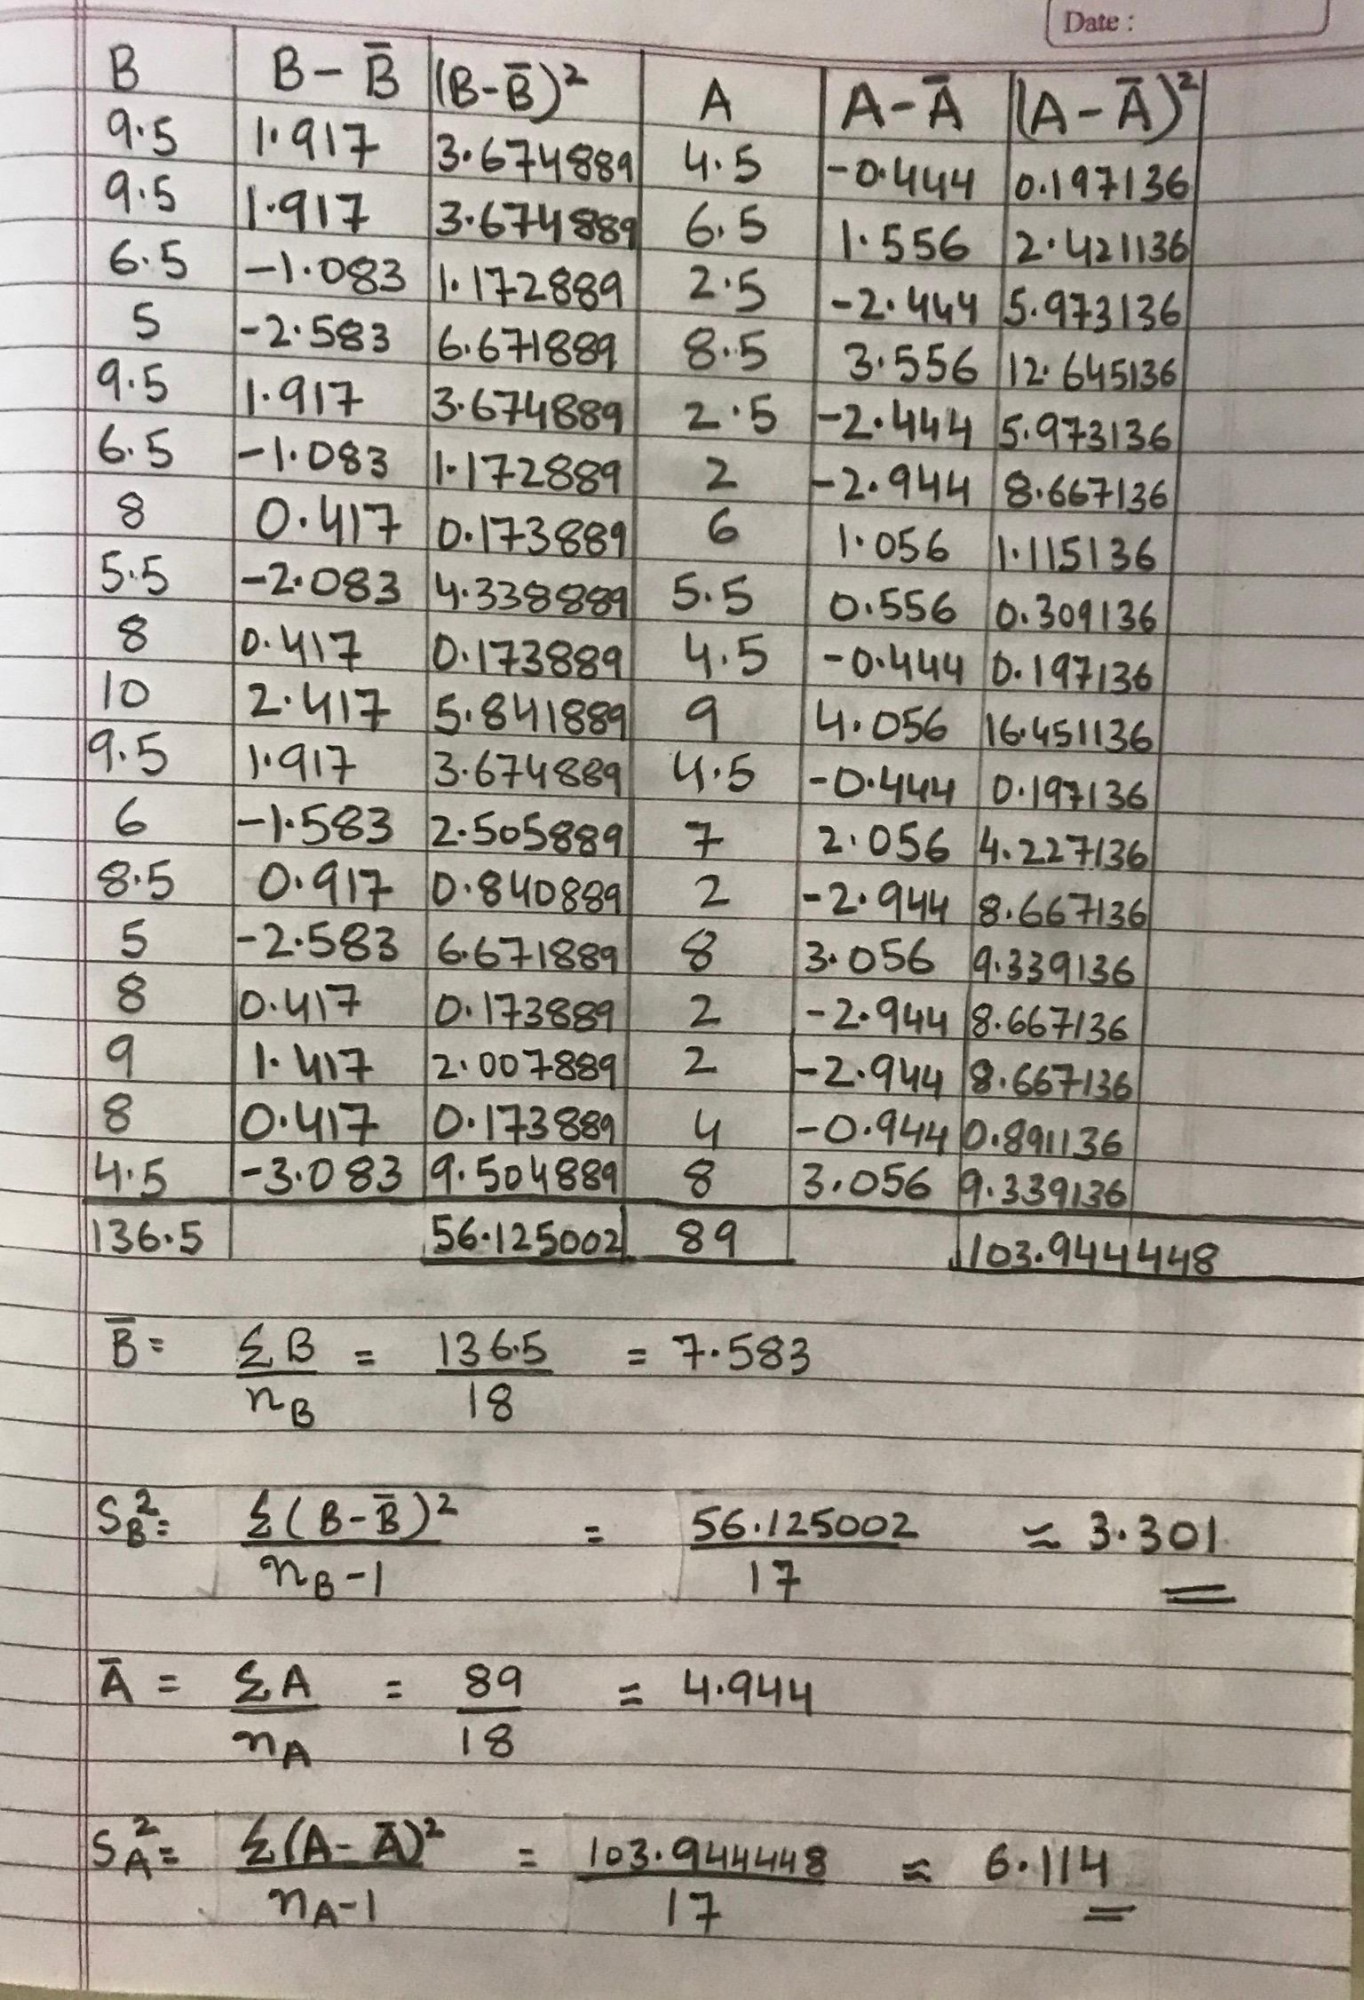 Date :
B B - B̄ (B-B̄)² A A - Ā (A - Ā)²
9.5 1.917 3.674889 4.5 -0.444 0.197136
9.5 1.917 3.674889 6.5 1.556 2.421136
6.5 -1.083 1.172889 2.5 -2.444 5.973136
5 -2.583 6.671889 8.5 3.556 12.645136
9.5 1.917 3.674889 2.5 -2.444 5.973136
6.5 -1.083 1.172889 2 -2.944 8.667136
8 0.417 0.173889 6 1.056 1.115136
5.5 -2.083 4.338889 5.5 0.556 0.309136
8 0.417 0.173889 4.5 -0.444 0.197136
10 2.417 5.841889 9 4.056 16.451136
9.5 1.917 3.674889 4.5 -0.444 0.197136
6 -1.583 2.505889 7 2.056 4.227136
8.5 0.917 0.840889 2 -2.944 8.667136
5 -2.583 6.671889 8 3.056 9.339136
8 0.417 0.173889 2 -2.944 8.667136
9 1.417 2.007889 2 -2.944 8.667136
8 0.417 0.173889 4 -0.944 0.891136
4.5 -3.083 9.504889 8 3.056 9.339136
136.5 56.125002 89 103.944448
B̄ = ΣB / n_B = 136.5 / 18 = 7.583
S_B² = Σ(B-B̄)² / n_B-1 = 56.125002 / 17 ≈ 3.301
Ā = ΣA / n_A = 89 / 18 = 4.944
S_A² = Σ(A-Ā)² / n_A-1 = 103.944448 / 17 ≈ 6.114